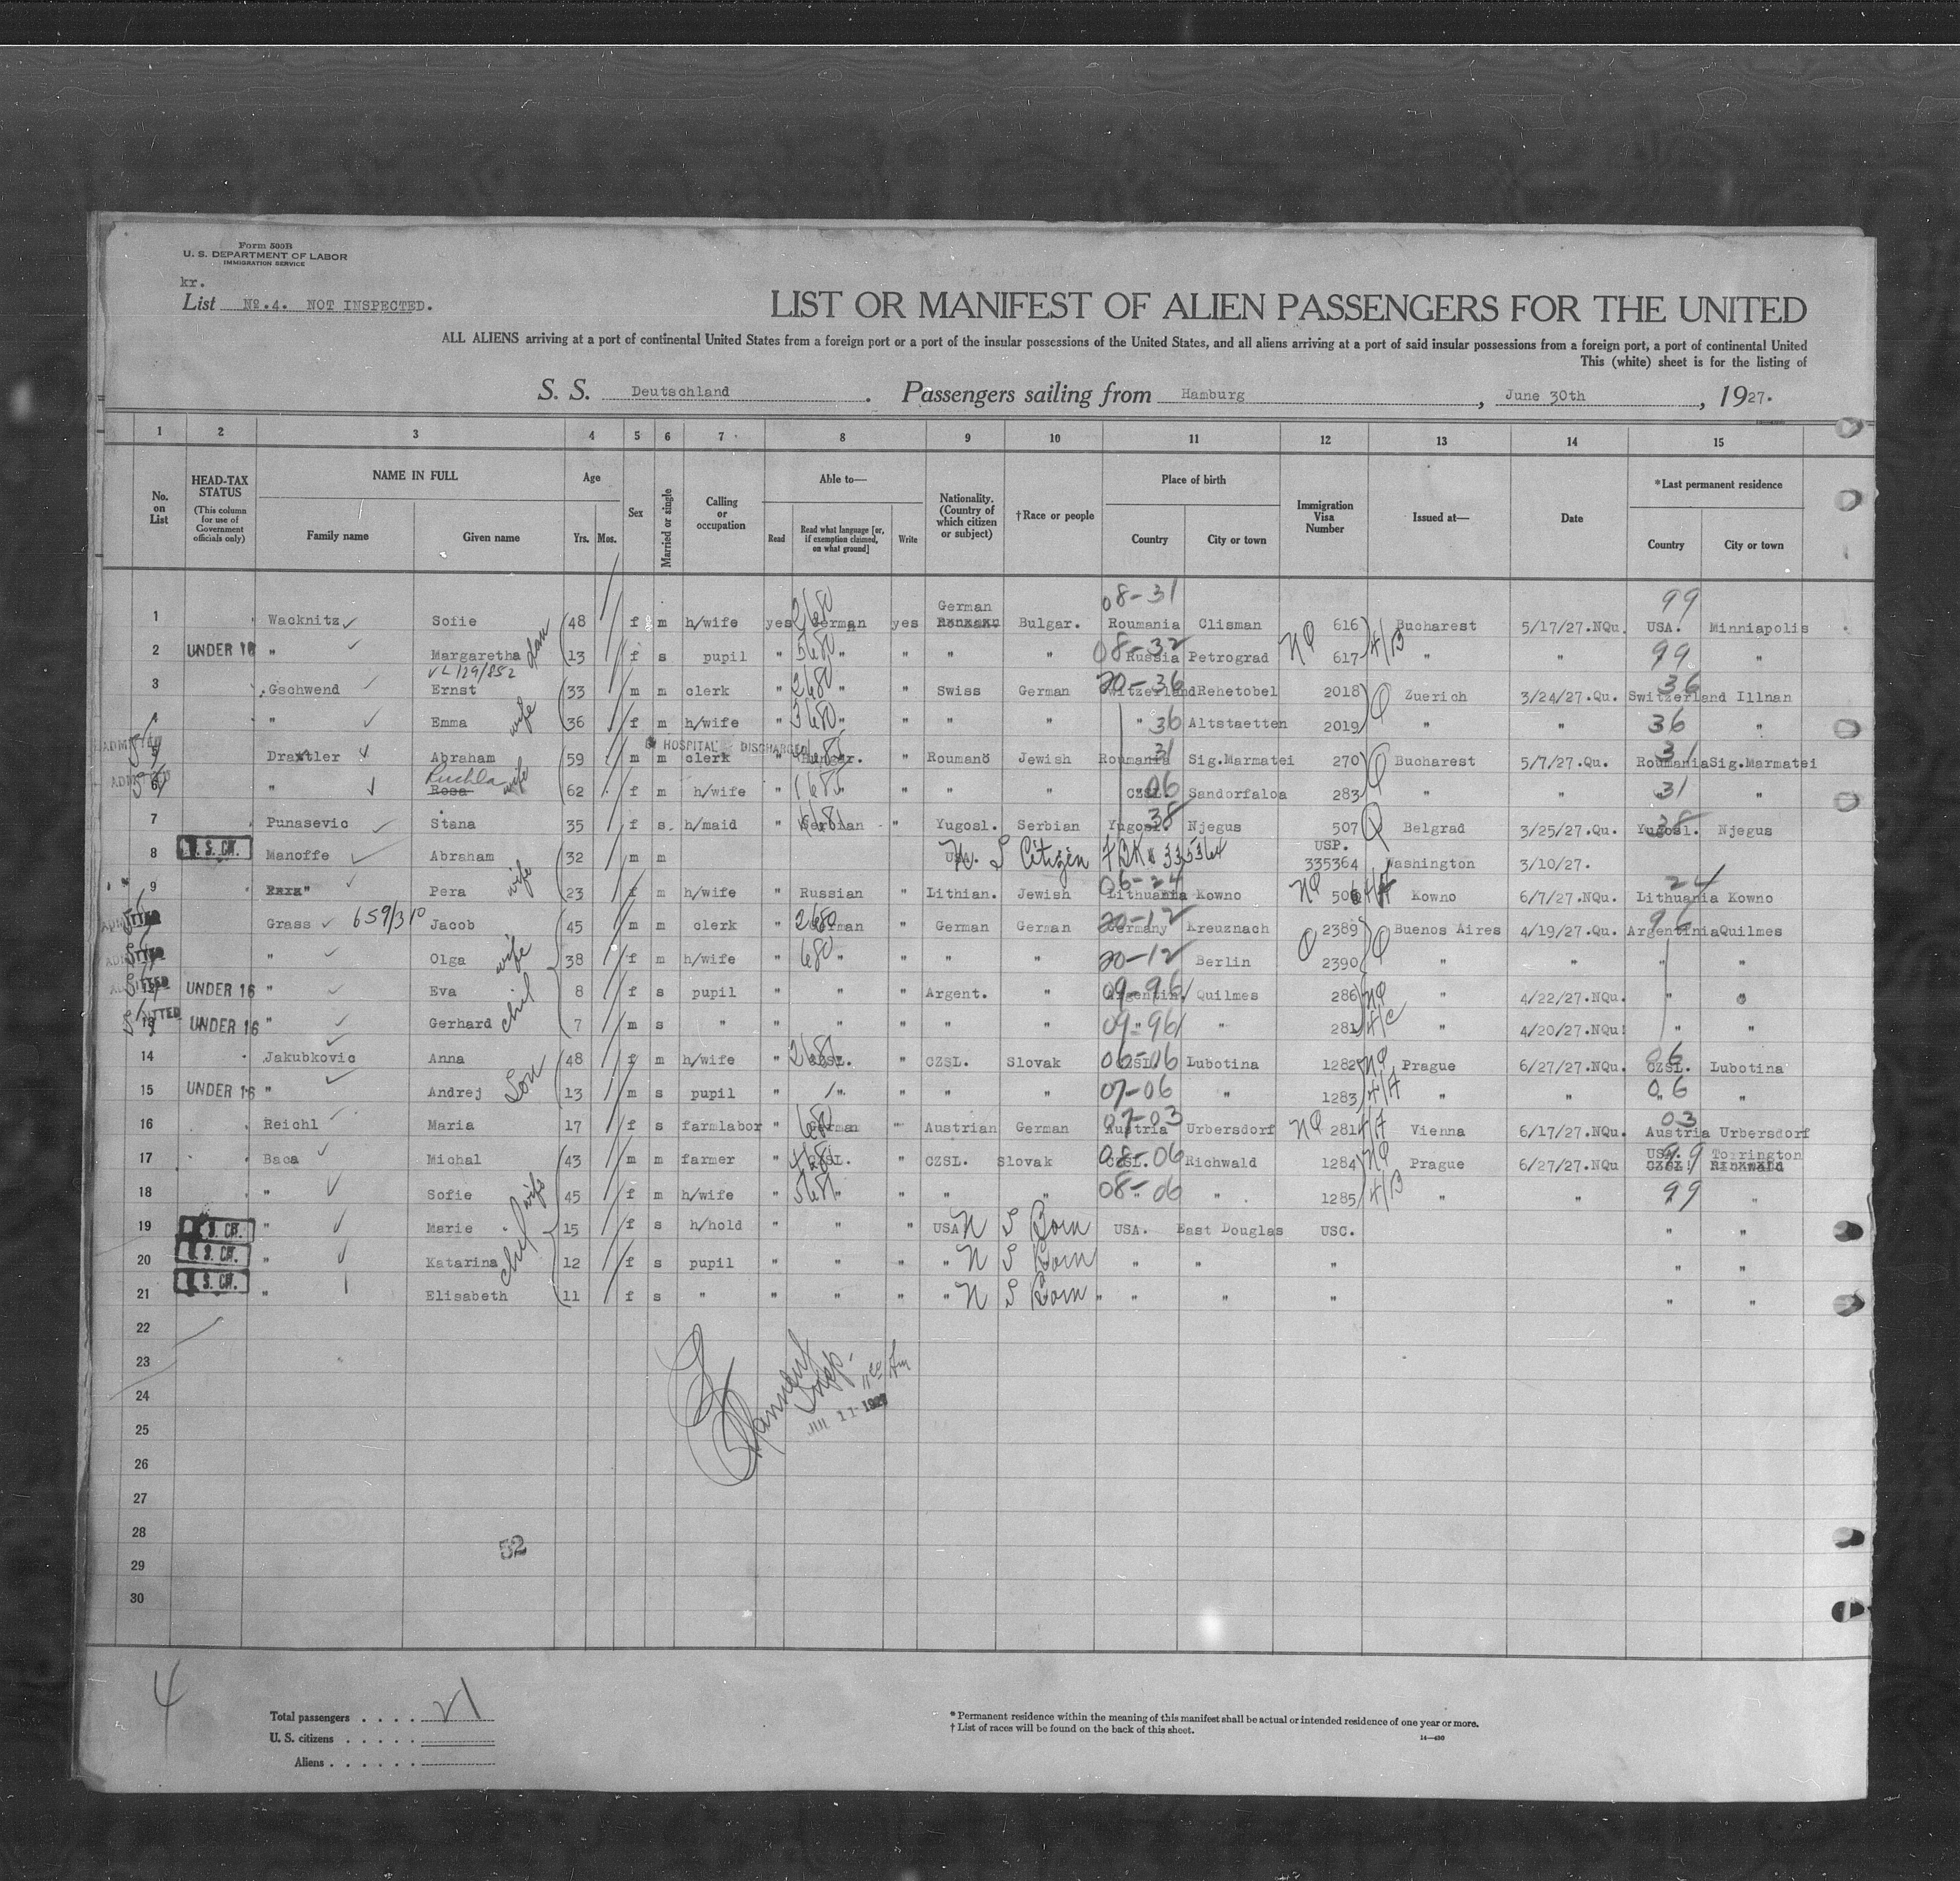 Form 500B
U. S. DEPARTMENT OF LABOR
IMMIGRATION SERVICE
kr.
List No.4. NOT INSPECTED.
LIST OR MANIFEST OF ALIEN PASSENGERS FOR THE UNITED
ALL ALIENS arriving at a port of continental United States from a foreign port or a port of the insular possessions of the United States, and all aliens arriving at a port of said insular possessions from a foreign port, a port of continental United
This (white) sheet is for the listing of
S. S. Deutschland. Passengers sailing from Hamburg, June 30th, 1927.
1 2 3 4 5 6 7 8 9 10 11 12 13 14 15
No. on List
HEAD-TAX STATUS (This column for use of Government officials only)
NAME IN FULL Family name Given name
Age Yrs. Mos.
Sex
Married or single
Calling or occupation
Able to— Read Read what language [or, if exemption claimed, on what ground] Write
Nationality. (Country of which citizen or subject)
†Race or people
Place of birth Country City or town
Immigration Visa Number
Issued at—
Date
*Last permanent residence Country City or town
08-31 99
1 Wacknitz Sofie 48 f m h/wife yes 2680 German yes German Bulgar. Roumania Clisman 616 Bucharest 5/17/27.NQu. USA. Minniapolis
2 UNDER 16 " Margaretha dau 13 f s pupil " 5680 " " " " 08-32 Russia Petrograd NQ 617 4/B " " 99 "
VL 129/852
3 Gschwend Ernst 33 m m clerk " 2680 " " Swiss German 20-36 Switzerland Rehetobel 2018 Q Zuerich 3/24/27.Qu. 36 Switzerland Illnan
4 " Emma wife 36 f m h/wife " 3680 " " " " " 36 Altstaetten 2019 " " 36 "
HOSPITAL DISCHARGED
5 ADMITTED Draxtler Abraham 59 m m clerk " Hungar. " Roumano Jewish Roumania 31 Sig.Marmatei 270 Q Bucharest 5/7/27.Qu. 31 Roumania Sig.Marmatei
6 ADMITTED " Ruchla Rosa wife 62 f m h/wife " " " " " CZSL. 06 Sandorfaloa 283 " " 31 "
7 Punasevic Stana 35 f s. h/maid " Serbian " Yugosl. Serbian Yugosl. 38 Njegus 507 Q Belgrad 3/25/27.Qu. Yugosl. 38 Njegus
8 U. S. CIT. Manoffe Abraham 32 m m USA. U. S Citizen 335364 USP. 335364 Washington 3/10/27.
9 " Pera wife 23 f m h/wife " Russian " Lithian. Jewish 06-24 Lithuania Kowno NQ 506 4/A Kowno 6/7/27.NQu. 24 Lithuania Kowno
ADMITTED Grass 659/310 Jacob 45 m m clerk " 2680 German " German German 20-12 Germany Kreuznach 2389 Q Buenos Aires 4/19/27.Qu. 96 Argentinia Quilmes
ADMITTED " Olga wife 38 f m h/wife " 680 " " " " 20-12 Berlin 2390 " " " "
12 ADMITTED UNDER 16 " Eva chil 8 f s pupil " " " Argent. " 09-96 Argentin. Quilmes 286 NQ " 4/22/27.NQu. " "
13 ADMITTED UNDER 16 " Gerhard 7 m s " " " " " " 09-96 " " 281 4/C " 4/20/27.NQu. " "
14 Jakubkovic Anna 48 f m h/wife " 268 CZSL. " CZSL. Slovak 06-06 CZSL. Lubotina 1282 NQ Prague 6/27/27.NQu. 06 CZSL. Lubotina
15 UNDER 16 " Andrej Son 13 m s pupil " " " " " 07-06 " 1283 4/A " " 06 " "
16 Reichl Maria 17 f s farmlabor " 680 German " Austrian German 07-03 Austria Urbersdorf NQ 281 4/A Vienna 6/17/27.NQu. 03 Austria Urbersdorf
17 Baca Michal 43 m m farmer " 468 CZSL. " CZSL. Slovak 08-06 CZSL. Richwald 1284 NQ Prague 6/27/27.NQu USA. 99 Torrington CZSL. Richwald
18 " Sofie wife 45 f m h/wife " 568 " " " " 08-06 " " 1285 4/B " " 99 "
19 U. S. CIT. " Marie chil 15 f s h/hold " " " USA U S Born USA. East Douglas USC. " "
20 U. S. CIT. " Katarina 12 f s pupil " " " " U S Born " " " " "
21 U. S. CIT. " Elisabeth 11 f s " " " " " U S Born " " " " " "
22
23
24
25
26
27
28
29
30
Insp.
JUL 11 1927
52
4
Total passengers . . . . 21
U. S. citizens . . . . .
Aliens . . . . . .
* Permanent residence within the meaning of this manifest shall be actual or intended residence of one year or more.
† List of races will be found on the back of this sheet.
14—430